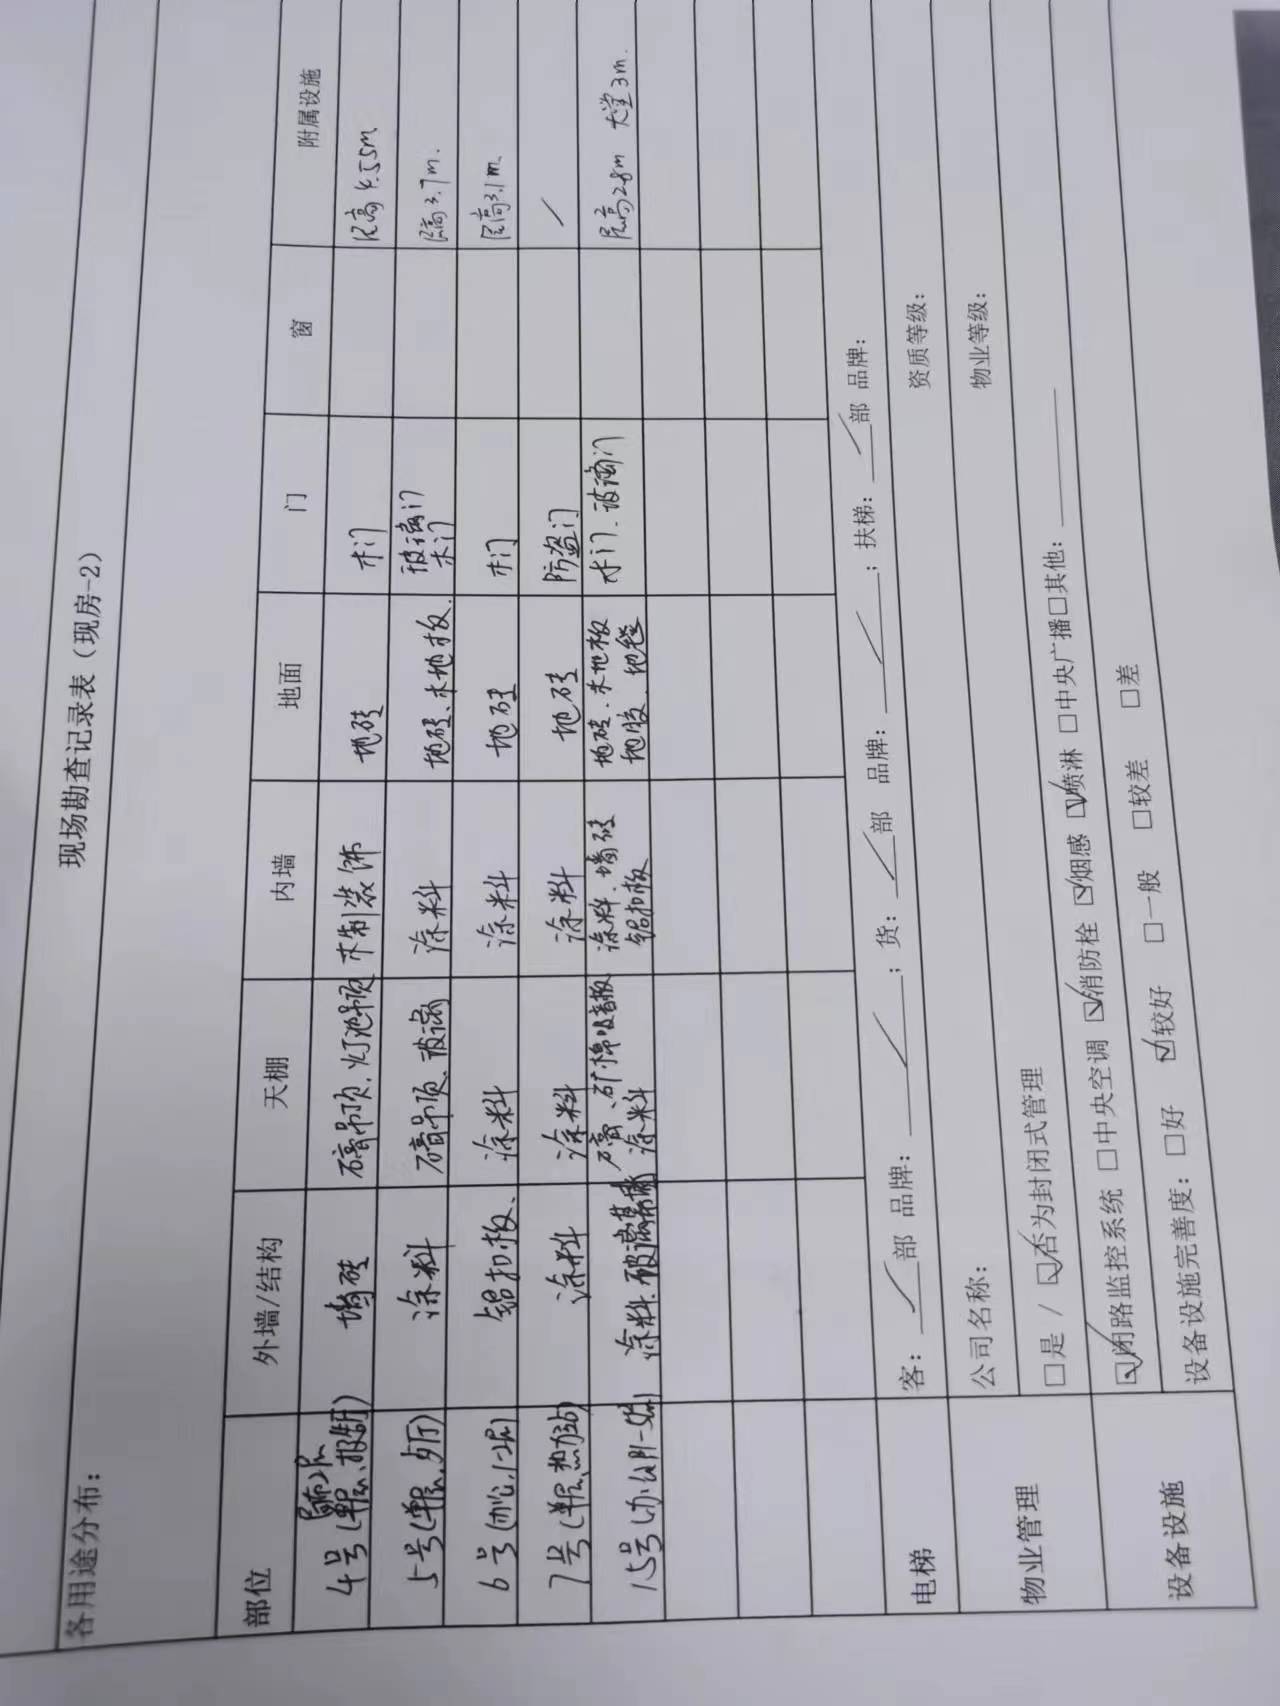 现场勘查记录表（现房-2）
各用途分布：
部位 外墙/结构 天棚 内墙 地面 门 窗 附属设施
局部2F
4号(单层、报告厅) 墙砖 石膏吊顶、灯池吊顶 木制装饰 地砖 木门 层高4.55m
5号(单层, 歺厅) 涂料 石膏吊顶、玻璃 涂料 地砖、木地板. 玻璃门 木门 层高3.7m.
6号(办公,1-2F) 铝扣板、 涂料 涂料 地砖 木门 层高3.1m
7号(单层, 热力站) 涂料 涂料 涂料 地砖 防盗门 /
15号(办公F1-5F) 涂料、玻璃幕墙 石膏、矿棉吸音板 涂料 涂料、墙砖 铝扣板 地砖、木地板 地胶、地毯 木门、玻璃门 层高2.8m 大堂3m.
电梯 客：/部 品牌：/；货：/部 品牌：/；扶梯：/部 品牌：
物业管理 公司名称： 资质等级： 物业等级：
□是 / ☑否为封闭式管理
设备设施 ☑闭路监控系统 □中央空调 ☑消防栓 ☑烟感 ☑喷淋 □中央广播□其他：
设备设施完善度：□好 ☑较好 □一般 □较差 □差